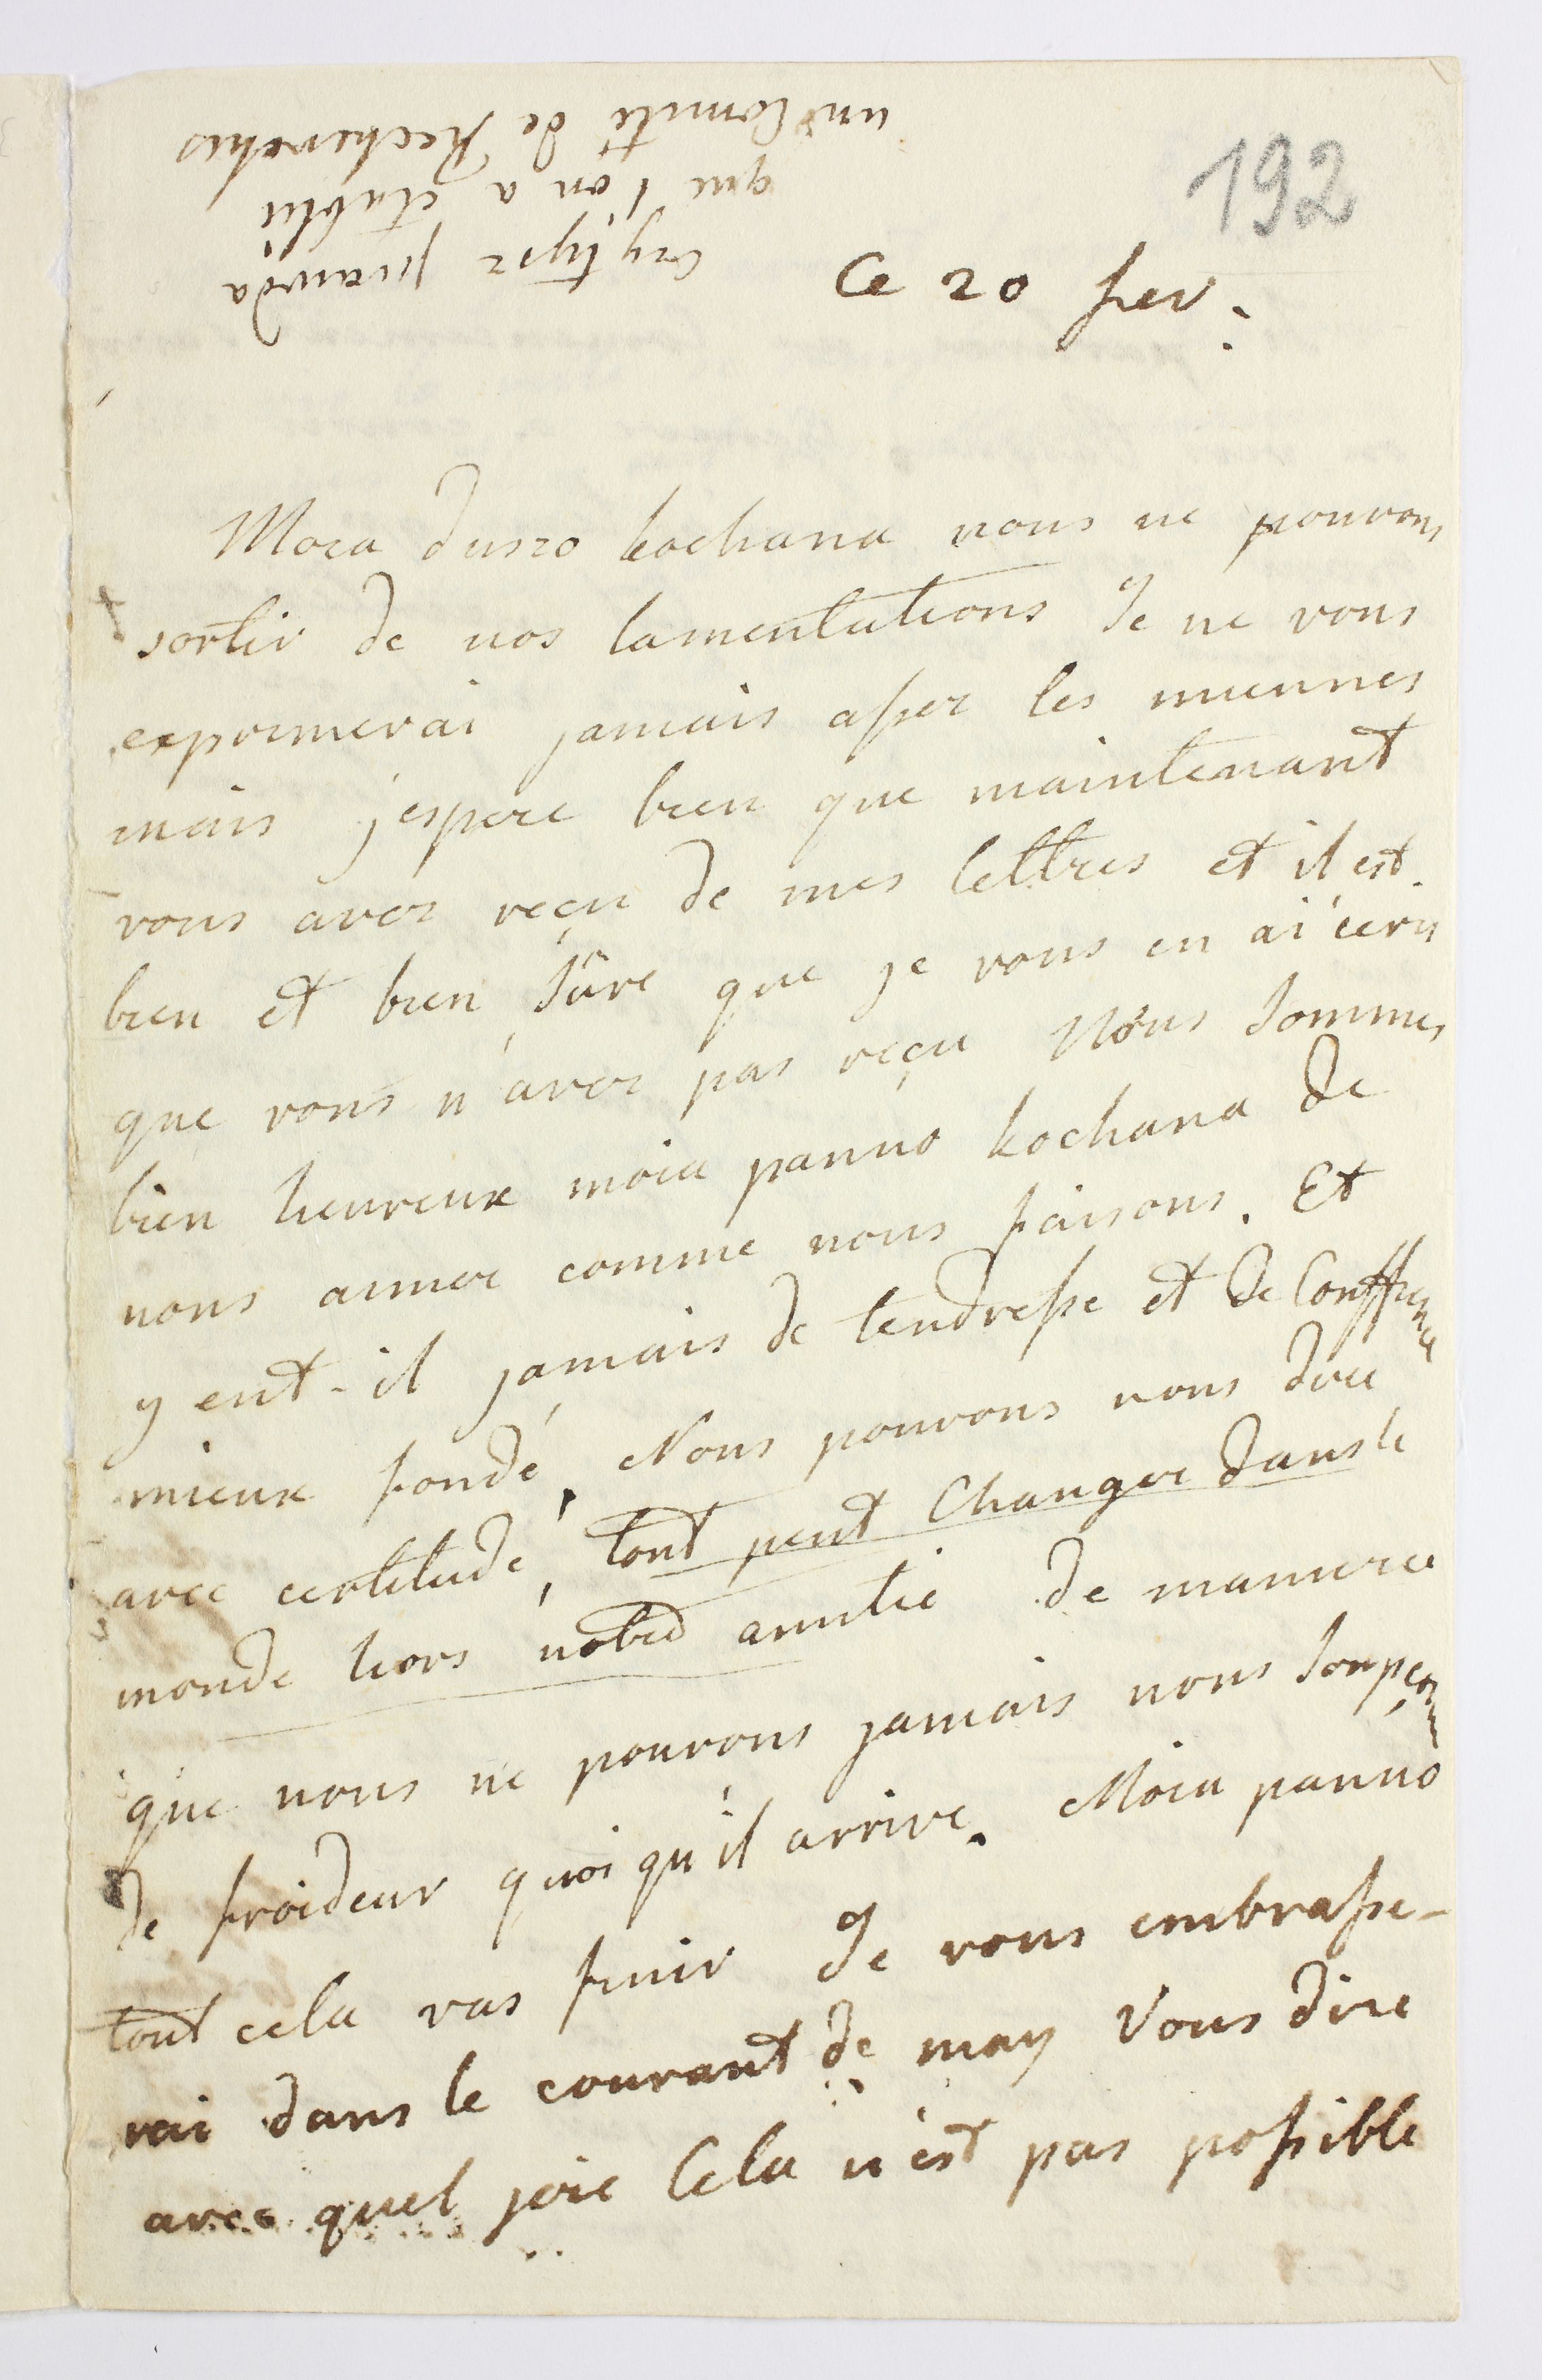 192
Czy tysz prawda
que l'on a etablie
une Comité de Recherches
Ce 20 fev:
Moia duszo kochana nous ne pouvons
sortir de nos lamentations Je ne vous
exprimerai jamais assez les miennes
mais j'espere bien que maintenant
vous avez reçu de mes lettres et il est
bien et bien sûre que je vous en ai ecris
que vous n'avez pas reçu Nous sommes
bien heureux moia panno kochana de
nous aimer comme nous faisons. Et
y eut-il jamais de tendresse et de Conffience
mieux fondé, Nous pouvons nous dire
avec certitude, tout peut Changer dans le
monde hors notre amitié de maniere
que nous ne pouvons jamais nous soupçon
de froideur quoi qu'il arrive. Moia panno
tout cela vas finir Je vous embrasse-
rai dans le courant de may Vous dire
avec quel joie Cela n'est pas possible